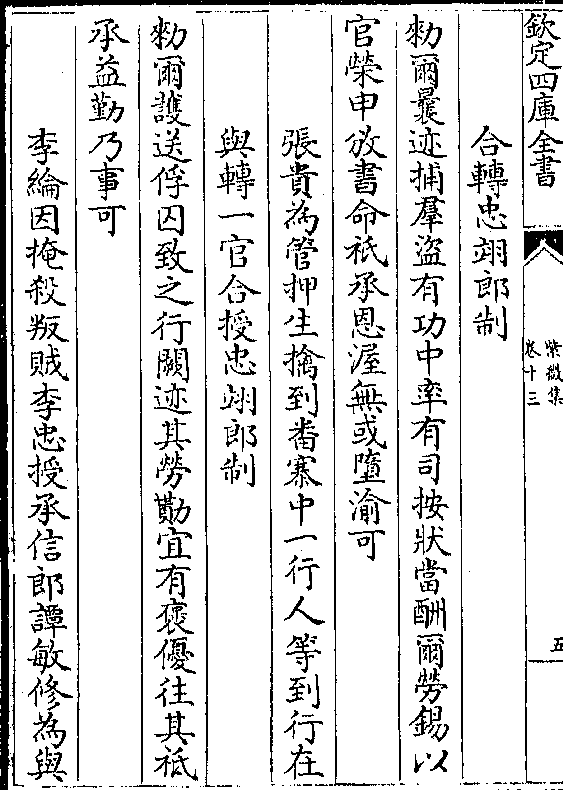 欽定四庫全書
紫微集
卷十三
五
合轉忠翊郎制
勑爾曩迹捕羣盜有功中率有司按狀當酬爾勞錫以
官榮申放書命祇承恩渥無或墮渝可
張貴為管押生擒到畨寨中一行人等到行在
與轉一官合授忠翊郎制
勑爾護送俘囚致之行闕迹其勞勩宜有褒優往其祗
承益勤乃事可
李綸因掩殺叛賊李忠授承信郎譚敏修為與